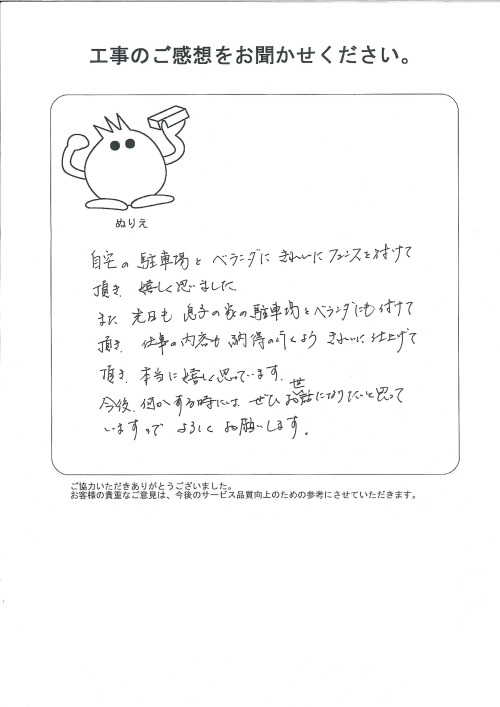 工事のご感想をお聞かせください。
ぬりえ
自宅の駐車場とベランダにきれいにフェンスを付けて
頂き、嬉しく思いました。
また先日も息子の家の駐車場とベランダにも付けて
頂き、仕事の内容も納得の行くようきれいに仕上げて
頂き、本当に嬉しく思っています。
今後、何かする時にはぜひお世話になりたいと思って
いますのでよろしくお願いします。
ご協力いただきありがとうございました。
お客様の貴重なご意見は、今後のサービス品質向上のための参考にさせていただきます。